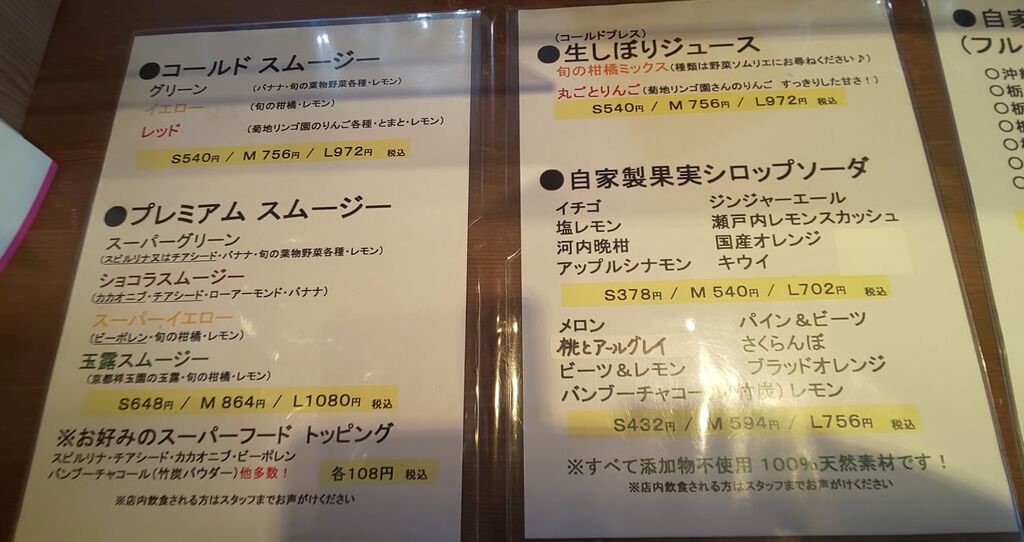 ●コールド スムージー
グリーン (バナナ・旬の葉物野菜各種・レモン)
イエロー (旬の柑橘・レモン)
レッド (菊地リンゴ園のりんご各種・とまと・レモン)
S540円 / M 756円 / L972円 税込
●プレミアム スムージー
スーパーグリーン
(スピルリナ又はチアシード・バナナ・旬の葉物野菜各種・レモン)
ショコラスムージー
(カカオニブ・チアシード・ローアーモンド・バナナ)
スーパーイエロー
(ビーポレン・旬の柑橘・レモン)
玉露スムージー
(京都祥玉園の玉露・旬の柑橘・レモン)
S648円 / M 864円 / L1080円 税込
※お好みのスーパーフード トッピング
スピルリナ・チアシード・カカオニブ・ビーポレン
バンブーチャコール(竹炭パウダー)他多数！ 各108円 税込
※店内飲食される方はスタッフまでお声がけください
(コールドプレス)
●生しぼりジュース
旬の柑橘ミックス(種類は野菜ソムリエにお尋ねください♪)
丸ごとりんご(菊地リンゴ園さんのりんご すっきりした甘さ！)
S540円 / M 756円 / L972円 税込
●自家製果実シロップソーダ
イチゴ ジンジャーエール
塩レモン 瀬戸内レモンスカッシュ
河内晩柑 国産オレンジ
アップルシナモン キウイ
S378円 / M 540円 / L702円 税込
メロン パイン＆ビーツ
桃とアールグレイ さくらんぼ
ビーツ＆レモン ブラッドオレンジ
バンブーチャコール(竹炭)レモン
S432円 / M 594円 / L756円 税込
※すべて添加物不使用 100%天然素材です！
※店内飲食される方はスタッフまでお声がけください
●自家
(フル
○沖縄
○栃
○栃
○
○
○
○